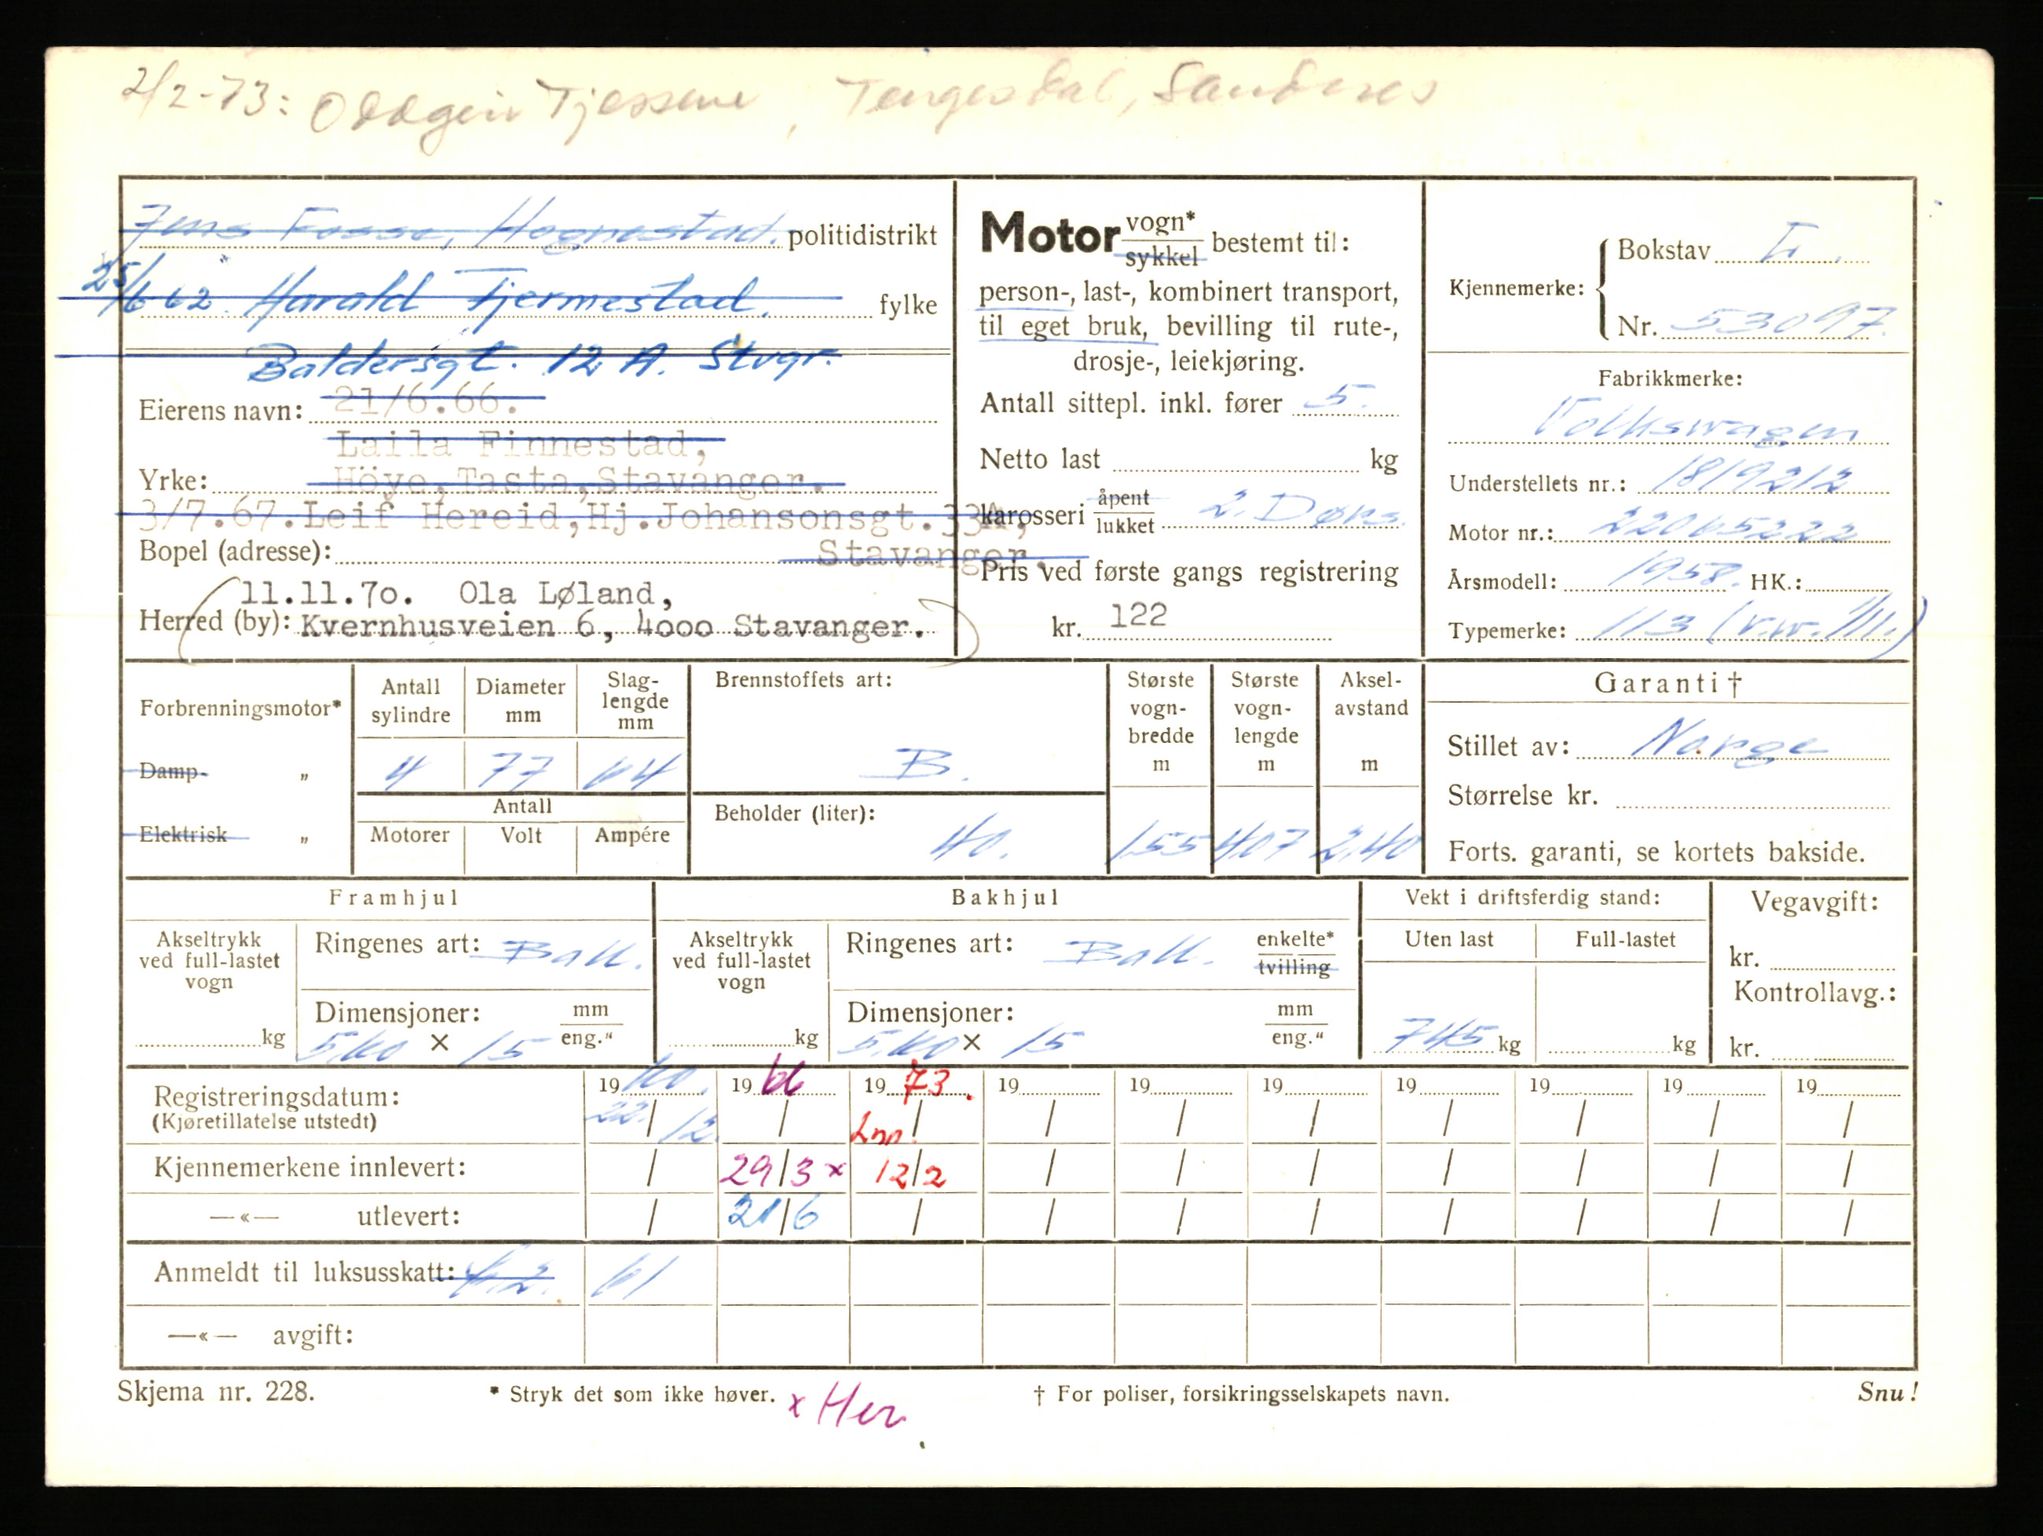 2/2-73: Oddgeir Tjessem, Tengesdal, Sandnes
Jens Fosse, Hognestad. politidistrikt
25/6 62 Harald Tjermestad. fylke
Baldersgt. 12 A. Stvgr.
Eierens navn: 21/6.66.
Laila Finnestad,
Yrke: Höye, Tasta, Stavanger.
3/7.67. Leif Hereid, Hj. Johansonsgt. 33A,
Bopel (adresse): Stavanger.
11.11.70. Ola Løland,
Herred (by): Kvernhusveien 6, 4000 Stavanger.
Motor vogn* / sykkel bestemt til:
person-, last-, kombinert transport,
til eget bruk, bevilling til rute-,
drosje-, leiekjøring.
Antall sittepl. inkl. fører 5.
Netto last kg
karosseri åpent / lukket 2. Dørs.
Pris ved første gangs registrering
kr. 122
Kjennemerke: Bokstav L.
Nr. 53097.
Fabrikkmerke:
Volkswagen
Understellets nr.: 1819212
Motor nr.: 22065222
Årsmodell: 1958. HK.:
Typemerke: 113 (v.w. 111.)
Forbrenningsmotor*
Damp- „
Elektrisk „
Antall sylindre 4
Diameter mm 77
Slag-lengde mm 64
Antall
Motorer Volt Ampére
Brennstoffets art:
B.
Beholder (liter):
40.
Største vogn-bredde m 155
Største vogn-lengde m 407
Aksel-avstand m 2.40
Garanti †
Stillet av: Norge
Størrelse kr.
Forts. garanti, se kortets bakside.
Framhjul
Akseltrykk ved full-lastet vogn kg
Ringenes art: Ball.
Dimensjoner: mm / eng."
5.60 × 15
Bakhjul
Akseltrykk ved full-lastet vogn kg
Ringenes art: Ball. enkelte* / tvilling
Dimensjoner: mm / eng."
5.60 × 15
Vekt i driftsferdig stand:
Uten last Full-lastet
745 kg kg
Vegavgift:
kr.
Kontrollavg.:
kr.
Registreringsdatum: 1960. 1966 1973. 19 19 19 19 19 19 19
(Kjøretillatelse utstedt) 22./12. / Inn. / / / / / / / /
Kjennemerkene innlevert: / 29/3 x 12/2 / / / / / / /
—«— utlevert: / 21/6 / / / / / / / /
Anmeldt til luksusskatt: 61
—«— avgift:
Skjema nr. 228.
* Stryk det som ikke høver.
x Her
† For poliser, forsikringsselskapets navn.
Snu!